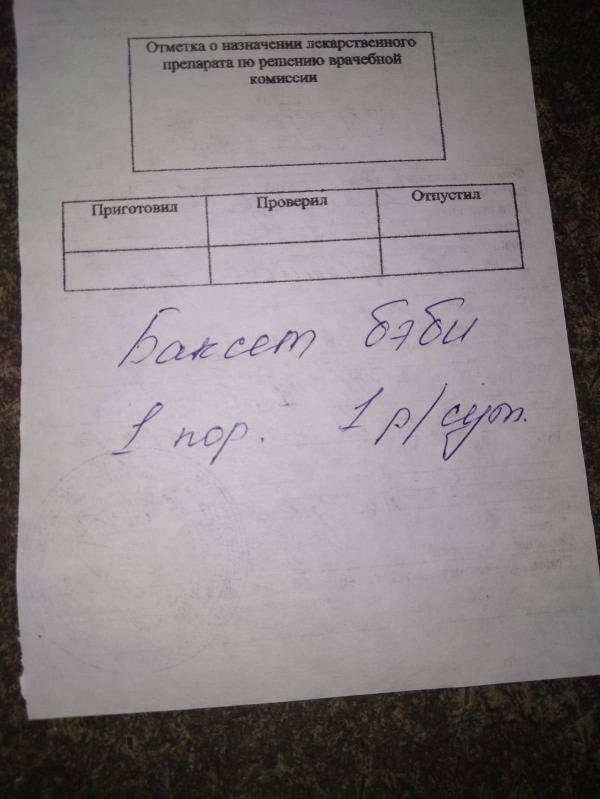 Отметка о назначении лекарственного
препарата по решению врачебной
комиссии
Приготовил Проверил Отпустил
Баксет бэби
1 пор. 1 р/сут.